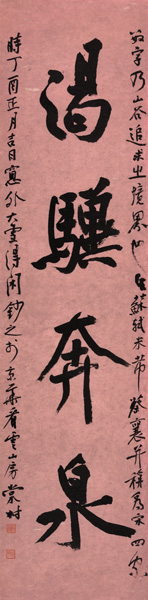 字乃山谷追求之境界也與蘇軾米芾蔡襄并稱為宋四家
渴驥奔泉
時丁酉正月吉日窗外大雪得閑鈔之於京華看雲山房棠村